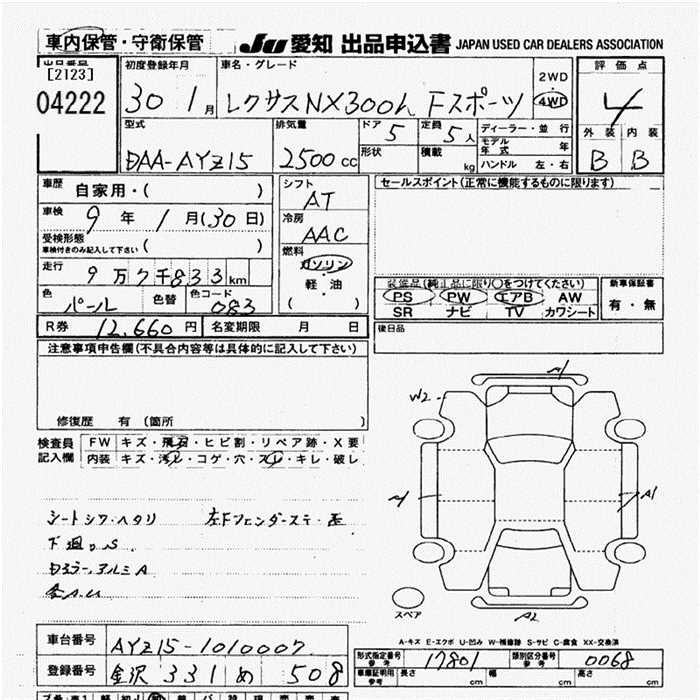 車内保管・守衛保管 JU 愛知 出品申込書 JAPAN USED CAR DEALERS ASSOCIATION
出品番号 初度登録年月 車名・グレード 評価点
[2123] 2WD
04222 30 1月 レクサスNX300h Fスポーツ 4WD 4
型式 排気量 ドア 5 定員 5人 ディーラー・並行 外装 内装
モデル年式 年
DAA-AYZ15 2500cc 形状 積載 kg ハンドル 左・右 B B
車歴 自家用・( ) シフト AT セールスポイント(正常に機能するものに限ります)
車検 9年 1月(30日) 冷房 AAC
受検形態 車検付きのみ記入して下さい ( ) 燃料 ガソリン
走行 9万7千833km 軽・油 装備品(純正品に限り○をつけてください) 新車保証書
色 パール 色替 色コード 083 ( ) PS PW エアB AW 有・無
SR ナビ TV カワシート
R券 12,660円 名変期限 月 日 後日品
注意事項申告欄(不具合内容等は具体的に記入して下さい)
A1
W2
修復歴 有 (箇所 )
検査員 FW キズ・飛石・ヒビ割・リペア跡・X要
記入欄 内装 キズ・汚レ・コゲ・穴・スレ・キレ・破レ
A1 A1
シートシワ・ヘタリ
下廻り.S
スペア A2
A-キズ E-エクボ U-凹み W-補修跡 S-サビ C-腐食 XX-交換済
車台番号 AYZ15-1010007 形式指定番号 参考 17801 類別区分番号 参考 0068
登録番号 金沢 331 め 508 車庫証明用 参考 長さ cm 幅 cm 高さ cm